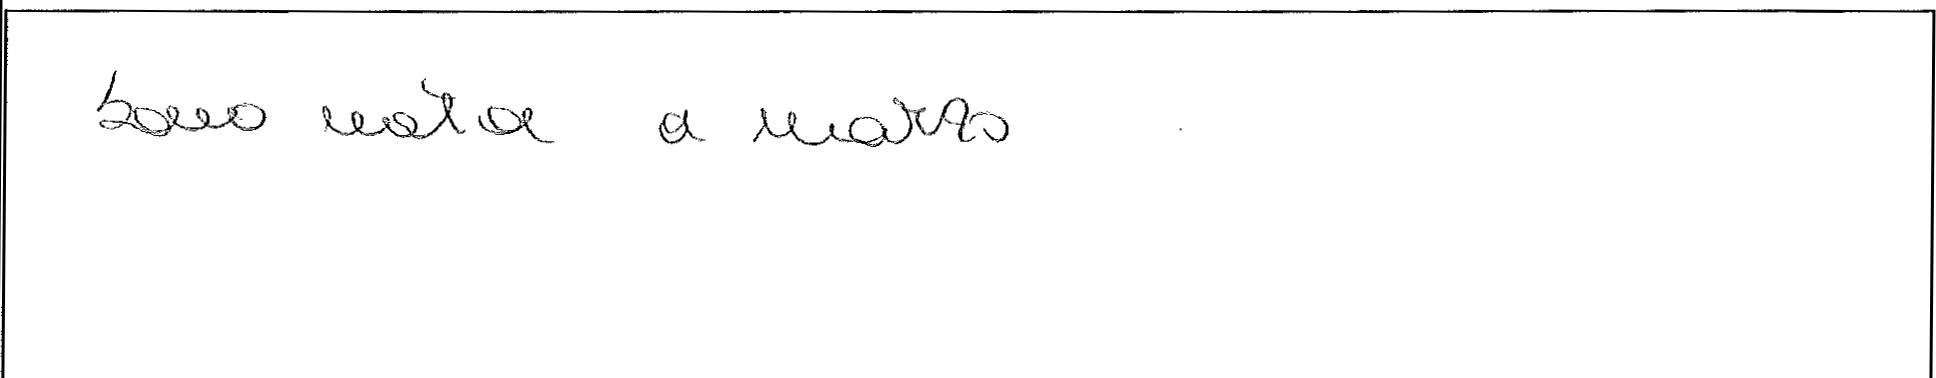 Sono nata a marzo